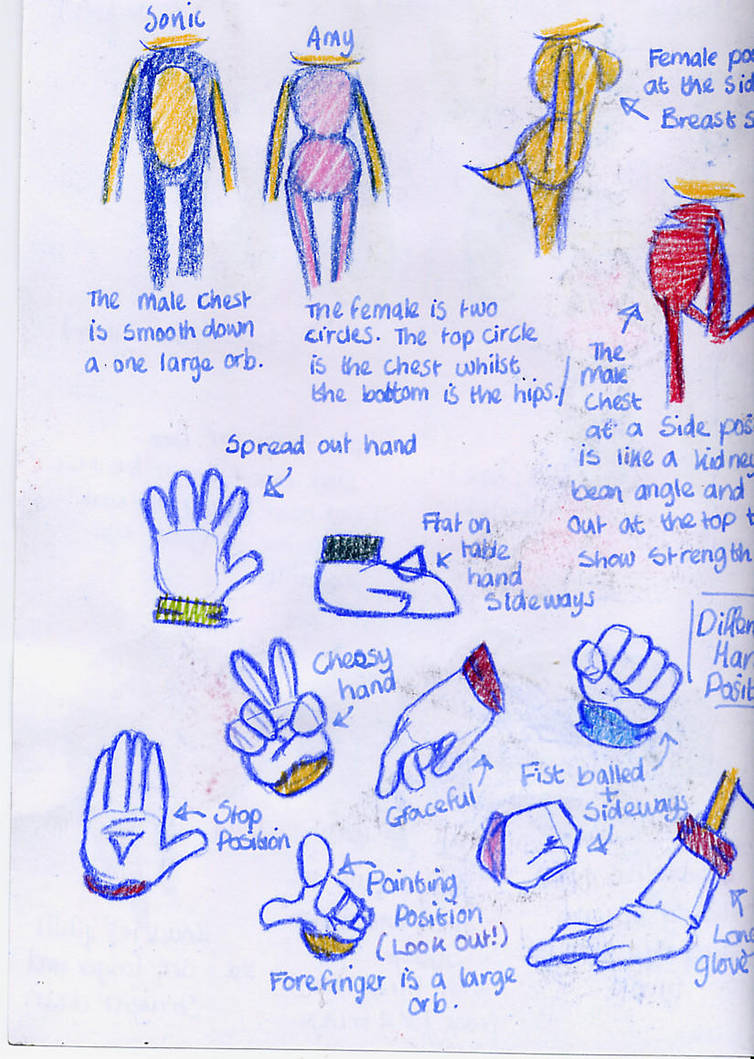 Sonic
Amy
Female pos
at the sid
Breast s
The male chest
is smooth down
a one large orb.
The female is two
circles. The top circle
is the chest whilst
the bottom is the hips.
The
male
chest
at a side pos
is like a kidney
bean angle and
out at the top t
show strength
Spread out hand
Flat on
table
hand
sideways
Differ
Han
Posit
Cheesy
hand
Graceful
Fist balled
+
Sideways
Stop
Position
Pointing
Position
(Look out!)
Forefinger is a large
orb.
Long
glove